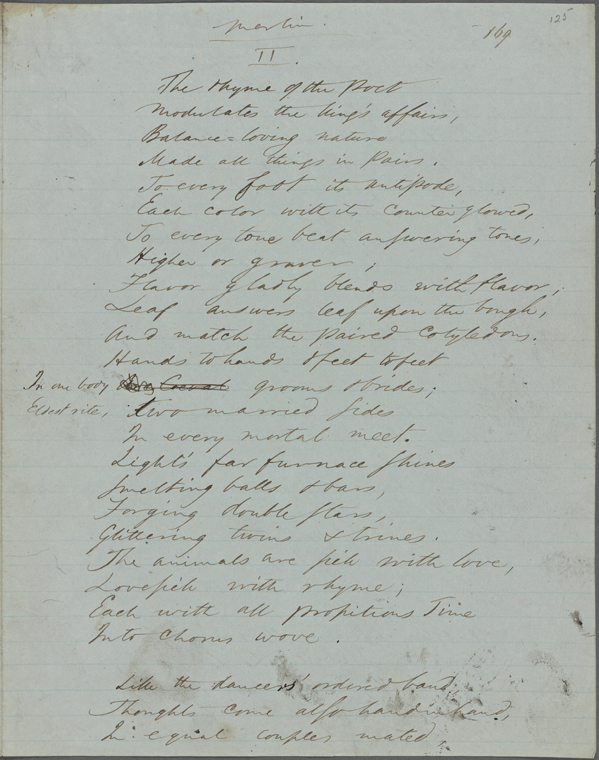 125
Merlin.
169
II.
The rhyme of the Poet
Modulates the king's affairs,
Balance=loving nature
Made all things in Pairs.
To every foot its antipode,
Each color with its counter glowed,
To every tone beat answering tones,
Higher or graver;
Flavor gladly blends with flavor;
Leaf answers leaf upon the bough,
And match the paired cotyledons.
Hands to hands & feet to feet
In one body grooms & brides;
Eldest rite, two married sides
In every mortal meet.
Light's far furnace shines
Smelting balls & bars,
Forging double stars,
Glittering twins & trines.
The animals are sick with love,
Lovesick with rhyme;
Each with all propitious Time
Into chorus wove.
Like the dancers' ordered band,
Thoughts come also hand in hand,
In equal couples mated